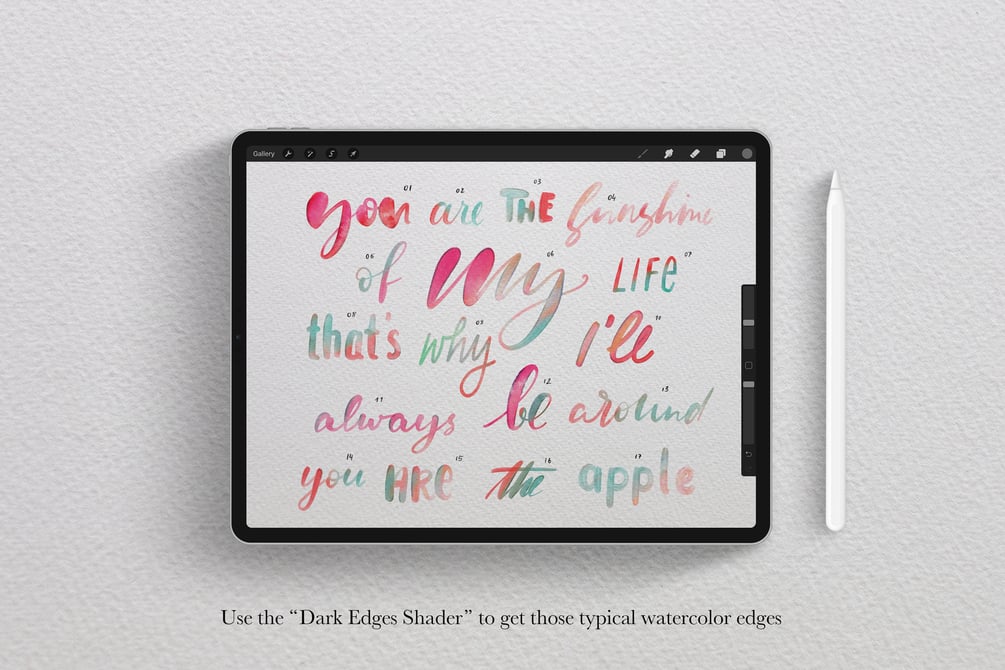 Gallery
01 02 03 04
you are THE sunshine
06 06 07
of my LIFE
08 09 10
that's why I'll
11 12 13
always be around
14 15 16 17
you ARE the apple
Use the “Dark Edges Shader” to get those typical watercolor edges